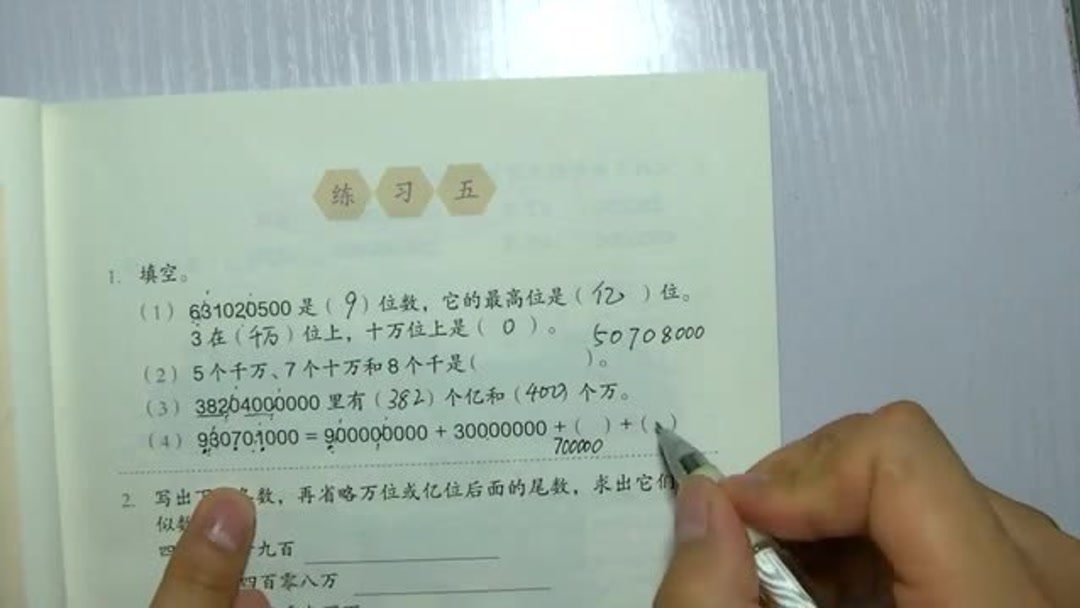 练习五
1. 填空。
(1) 631020500是(9)位数，它的最高位是(亿)位。
3在(千万)位上，十万位上是(0)。
50708000
(2) 5个千万、7个十万和8个千是( )。
(3) 38204000000里有(382)个亿和(400)个万。
(4) 930701000=900000000+30000000+( )+( )
700000
2. 写出 数，再省略万位或亿位后面的尾数，求出它们
似数
四 九百
四百零八万